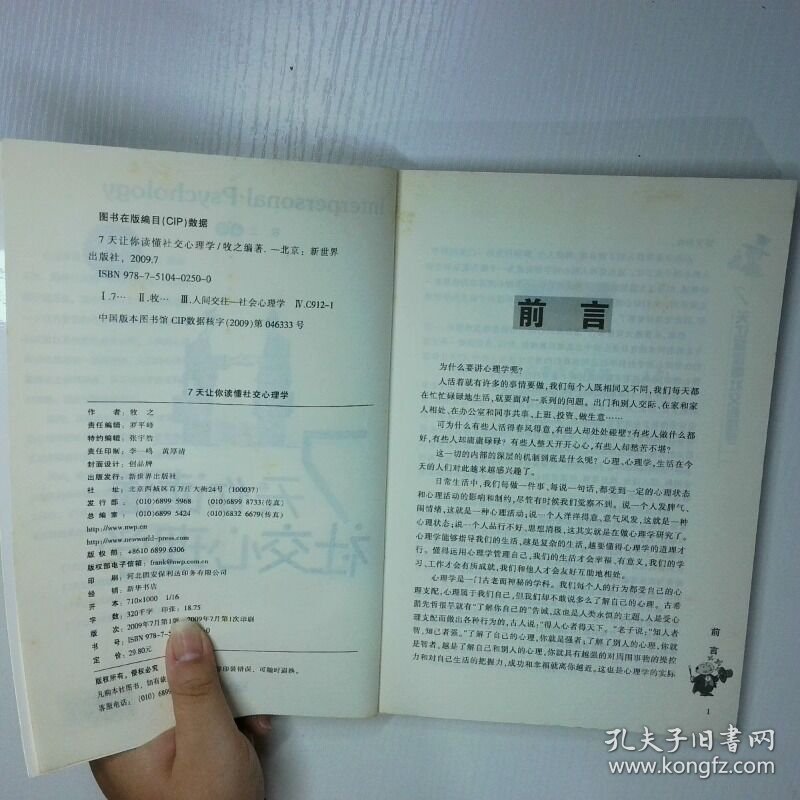 图书在版编目(CIP)数据
7天让你读懂社交心理学/牧之编著.—北京：新世界
出版社，2009.7
ISBN 978-7-5104-0250-0
Ⅰ.7… Ⅱ.牧… Ⅲ.人间交往—社会心理学 Ⅳ.C912-1
中国版本图书馆CIP数据核字(2009)第046333号
7天让你读懂社交心理学
作 者：牧 之
责任编辑：罗平峰
特约编辑：张宇哲
责任印制：李一鸣 黄厚清
封面设计：创品牌
出版发行：新世界出版社
社 址：北京西城区百万庄大街24号(100037)
发 行 部：(010)6899 5968 (010)6899 8733(传真)
总 编 室：(010)6899 5424 (010)6832 6679(传真)
http://www.nwp.cn
http://www.newworld-press.com
版 权 部：+8610 6899 6306
版权部电子信箱：frank@nwp.com.cn
印 刷：河北固安保利达印务有限公司
经 销：新华书店
开 本：710×1000 1/16
字 数：320千字 印张：18.75
版 次：2009年7月第1版 2009年7月第1次印刷
书 号：ISBN 978-7-5104-0250-0
定 价：29.80元
版权所有，侵权必究
凡购本社图书，如有缺 印装错误，可随时退换。
客服电话：(010)6899
Interpersonal Psychology
社交心
前言
为什么要讲心理学呢？
人活着就有许多的事情要做，我们每个人既相同又不同，我们每天都
在忙忙碌碌地生活，就要面对一系列的问题。出门和别人交际、在家和家
人相处、在办公室和同事共事、上班、投资、做生意……
可为什么有些人活得春风得意，有些人却处处碰壁？有些人做什么都
好，有些人却庸庸碌碌？有些人整天开开心心，有些人却愁苦不堪？
这一切的内部的深层的机制到底是什么呢？心理、心理学，生活在今
天的人们对此越来越感兴趣了。
日常生活中，我们每做一件事、每说一句话，都受到一定的心理状态
和心理活动的影响和制约，尽管有时候我们觉察不到。说一个人发脾气、
闹情绪，这就是一种心理活动；说一个人洋洋得意、意气风发，这就是一种
心理状态；说一个人品行不好、思想消极，这其实就是在做心理学研究了。
心理学能够指导我们的生活，越是复杂的生活，越要懂得心理学的道理才
行。懂得运用心理学管理自己，我们的生活才会幸福、有意义，我们的学
习、工作才会有所成就，我们和他人才会友好互助地相处。
心理学是一门古老而神秘的学科。我们每个人的行为都受自己的心
理支配，心理属于我们自己，但我们却不敢说多么了解自己的心理。古希
腊先哲很早就有“了解你自己”的告诫，这也是人类永恒的主题。人是受心
理支配而做出各种行为的，古人说：“得人心者得天下。”老子说：“知人者
智，知己者强。”了解了自己的心理，你就是强者；了解了别人的心理，你就
是智者。越是了解自己和别人的心理，你就具有越强的对周围事物的操控
力和对自己生活的把握力，成功和幸福就离你越近。这也是心理学的实际
前
言
1
孔夫子旧书网
www.kongfz.com